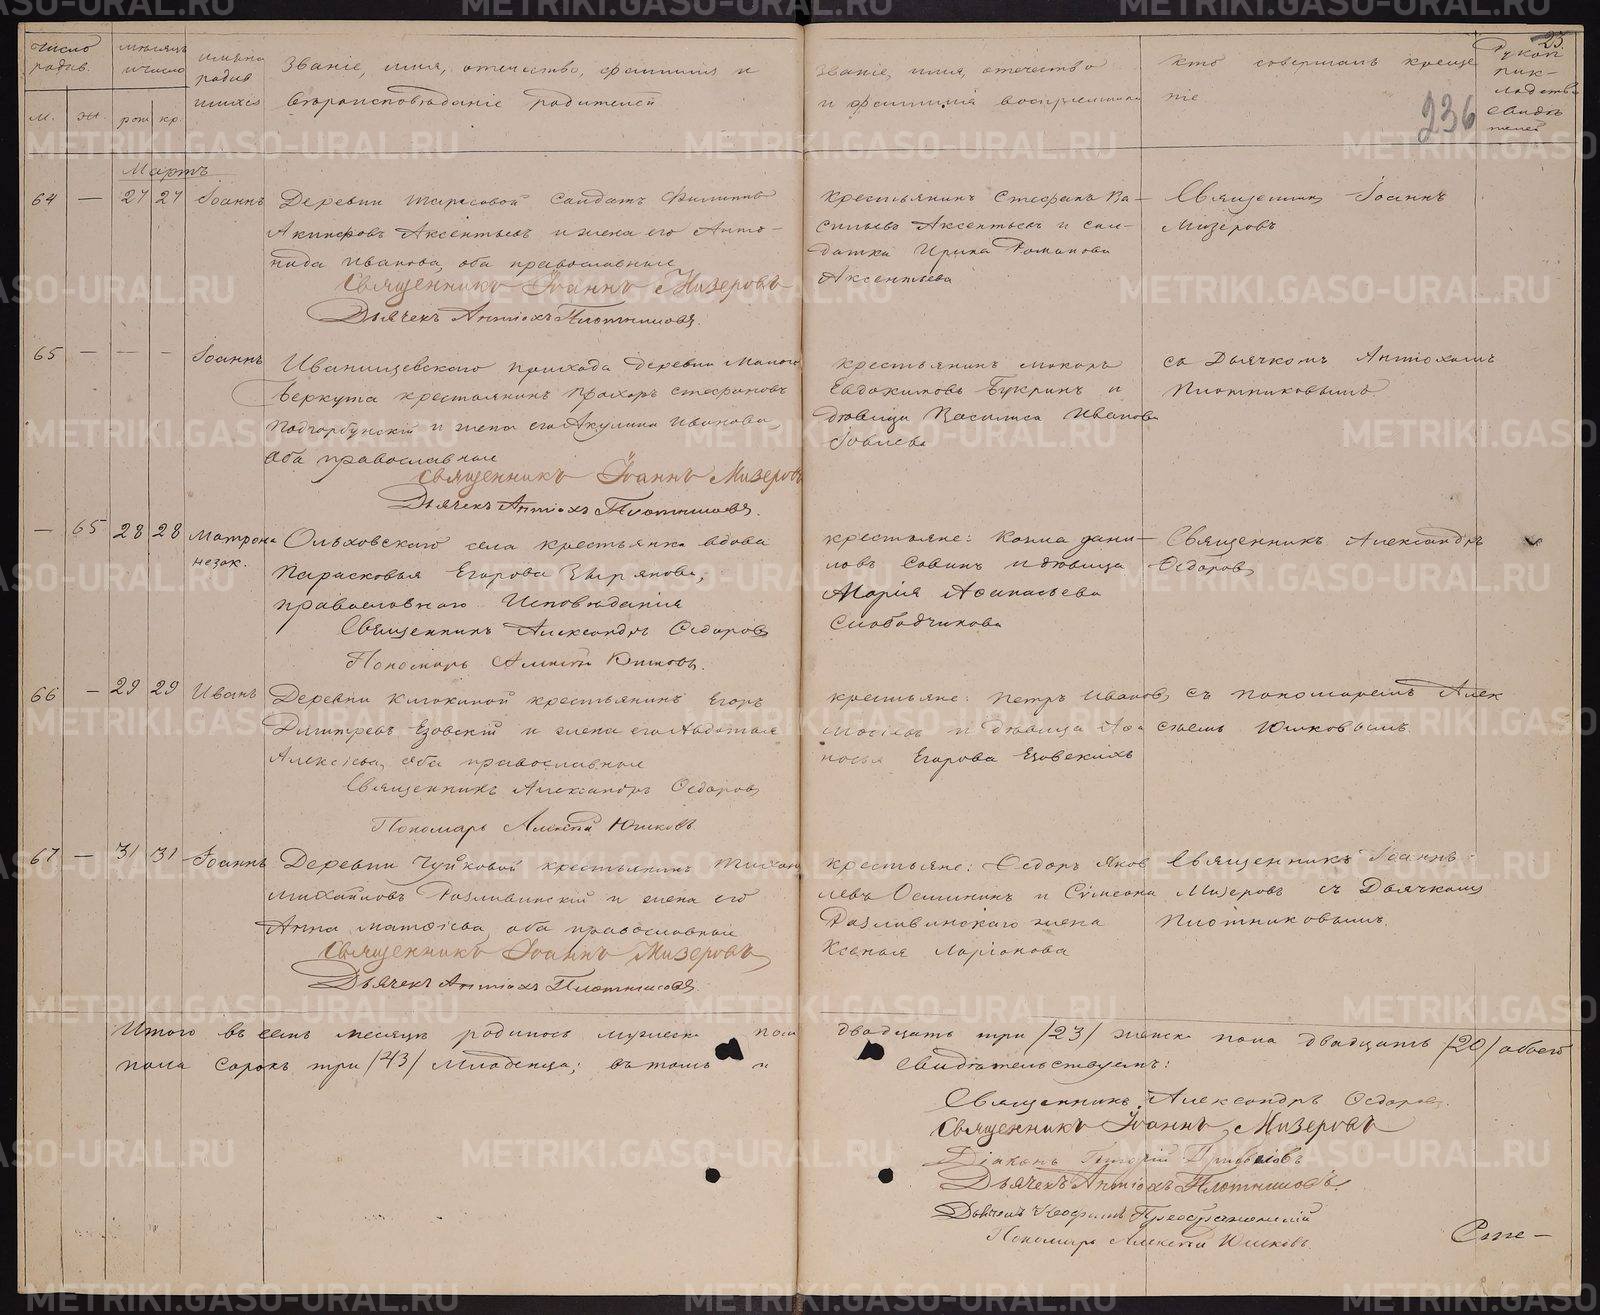 число родив.
мѣсяцъ и число
имяна родив шихся
Званіе, имя, отечество, фамилія и вѣроисповѣданіе родителей
Званіе, имя, отечество и фамилія воспріемниковъ
кто совершалъ креще ніе
236
25.
м.
ж.
рож
кр.
Мартъ
64 — 27 27 Іоаннъ
Деревни Тарасовой Солдатъ Филиппъ
Акинфовъ Аксентьевъ и жена его Анто-
нида Иванова, оба православные
Священникъ Іоаннъ Мизеровъ
Дьячекъ Антіохъ Плотниковъ.
крестьянинъ Стефанъ Ва-
сильевъ Аксентьевъ и сол-
датка Ирина Романова
Аксентьева
Священникъ Іоаннъ
Мизеровъ
65 — — — Іоаннъ
Иванищевскаго прихода деревни Малого
Беркута крестьянинъ Прохоръ Стефановъ
Подгорбунскій и жена его Акулина Иванова,
оба православные
Священникъ Іоаннъ Мизеровъ
Дьячекъ Антіохъ Плотниковъ.
крестьянинъ Макаръ
Евдокимовъ Букринъ и
дѣвица Василиса Иванова
съ Дьячкомъ Антіохомъ
Плотниковымъ
— 65 28 28 Матрона
незак.
Ольховскаго села крестьянка вдова
Парасковья Егорова Зырянова,
православнаго Исповѣданія
Священникъ Александръ Ѳедоровъ
Пономарь Алексѣй Юшковъ.
крестьяне: Козма Дани-
ловъ Савинъ и дѣвица
Марія Аѳанасьева
Слободчикова
Священникъ Александръ
Ѳедоровъ
66 — 29 29 Иванъ
Деревни Клюкиной крестьянинъ Егоръ
Димитревъ Езовскій и жена его Авдотья
Алексѣева, оба православные
Священникъ Александръ Ѳедоровъ
Пономарь Алексѣй Юшковъ.
крестьяне: Петръ Ивановъ
и дѣвица
Егорова Езовскихъ
съ пономаремъ Алек
сѣемъ Юшковымъ.
67 — 31 31 Іоаннъ
Деревни Чуйковой крестьянинъ Тихонъ
Михайловъ Разливинскій и жена его
Анна Матѳіева, оба православные
Священникъ Іоаннъ Мизеровъ
Дьячекъ Антіохъ Плотниковъ.
крестьяне: Ѳедоръ Яков
левъ Осининъ и Сѵмеона
Разливинскаго жена
Ксенья Ларіонова
Священникъ Іоаннъ
Мизеровъ съ Дьячкомъ
Плотниковымъ.
Итого въ семъ месяцѣ родилось мужеска пола
двадцать три /23/ женска пола двадцать /20/ обоего
пола сорокъ три /43/ младенца; въ томъ и
Свидѣтельствуемъ:
Священникъ Александръ Ѳедоровъ.
Священникъ Іоаннъ Мизеровъ
Діаконъ
Дьячекъ Антіохъ Плотниковъ.
Дьячекъ Преображенскій
Пономарь Алексѣй Юшковъ.
METRIKI.GASO-URAL.RU